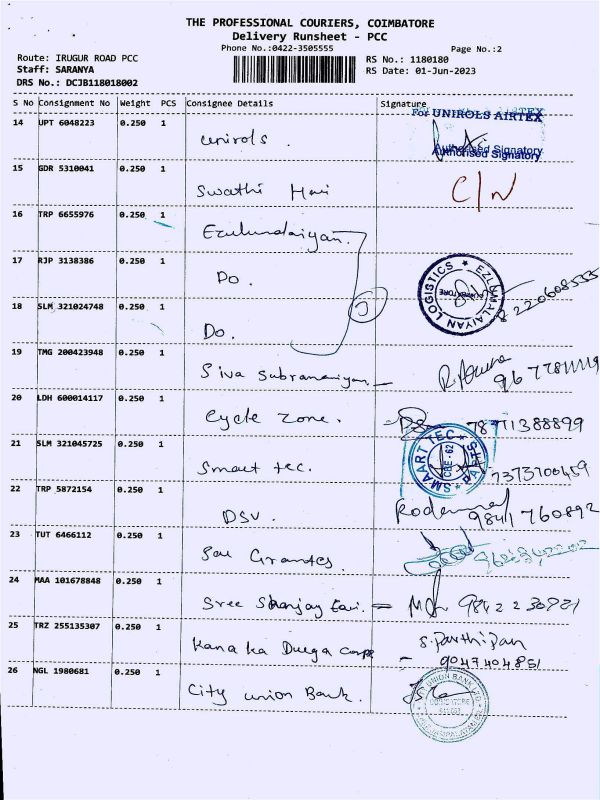 THE PROFESSIONAL COURIERS, COIMBATORE
Delivery Runsheet - PCC
Phone No.:0422-3505555
Page No.:2
Route: IRUGUR ROAD PCC
RS No.: 1180180
Staff: SARANYA
RS Date: 01-Jun-2023
DRS No.: DCJB118018002
S No Consignment No Weight PCS Consignee Details Signature
For UNIROLS AIRTEX
14 UPT 6048223 0.250 1 unirols.
Authorised Signatory
15 GDR 5310041 0.250 1 Swathi C/N
16 TRP 6655976 0.250 1 Ezulundaiyan.
17 RJP 3138386 0.250 1 Do.
EZLUMALAIYAN LOGISTICS
18 SLM 321024748 0.250 1 Do.
19 TMG 200423948 0.250 1 Siva Subramaniyan
20 LDH 600014117 0.250 1 Cycle Zone.
21 SLM 321045725 0.250 1 Smart tec.
SMAART TEC PARTS
CBE-62
22 TRP 5872154 0.250 1 DSV. 9841760892
23 TUT 6466112 0.250 1
24 MAA 101678848 0.250 1 Sree
25 TRZ 255135307 0.250 1 Kanaka Durga S. Parthipan
9047404851
26 NGL 1980681 0.250 1 City union Bank.
UNION BANK LTD